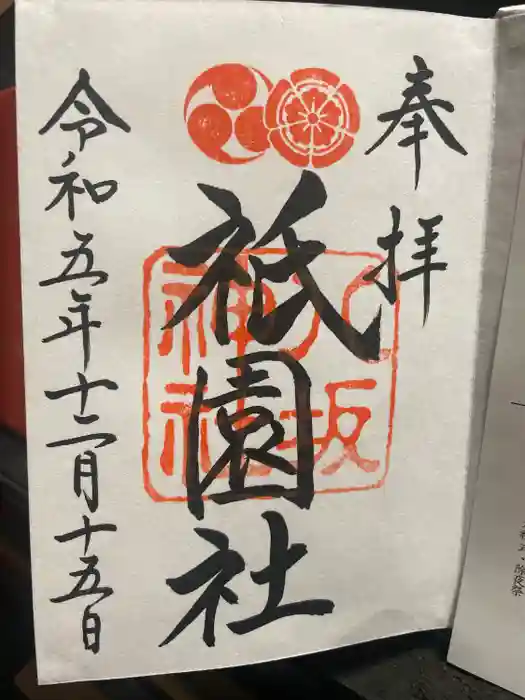 奉拝
祇園社
八坂神社
令和五年十二月十五日